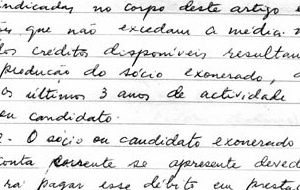 indicadas no corpo deste artigo
que não excedam a media
dos créditos disponíveis resultan
produção do sócio exonerado,
os últimos 3 anos de actividade
eu candidato.
. O sócio ou candidato exonerado
conta corrente se apresente deved
rá pagar esse débito em presta